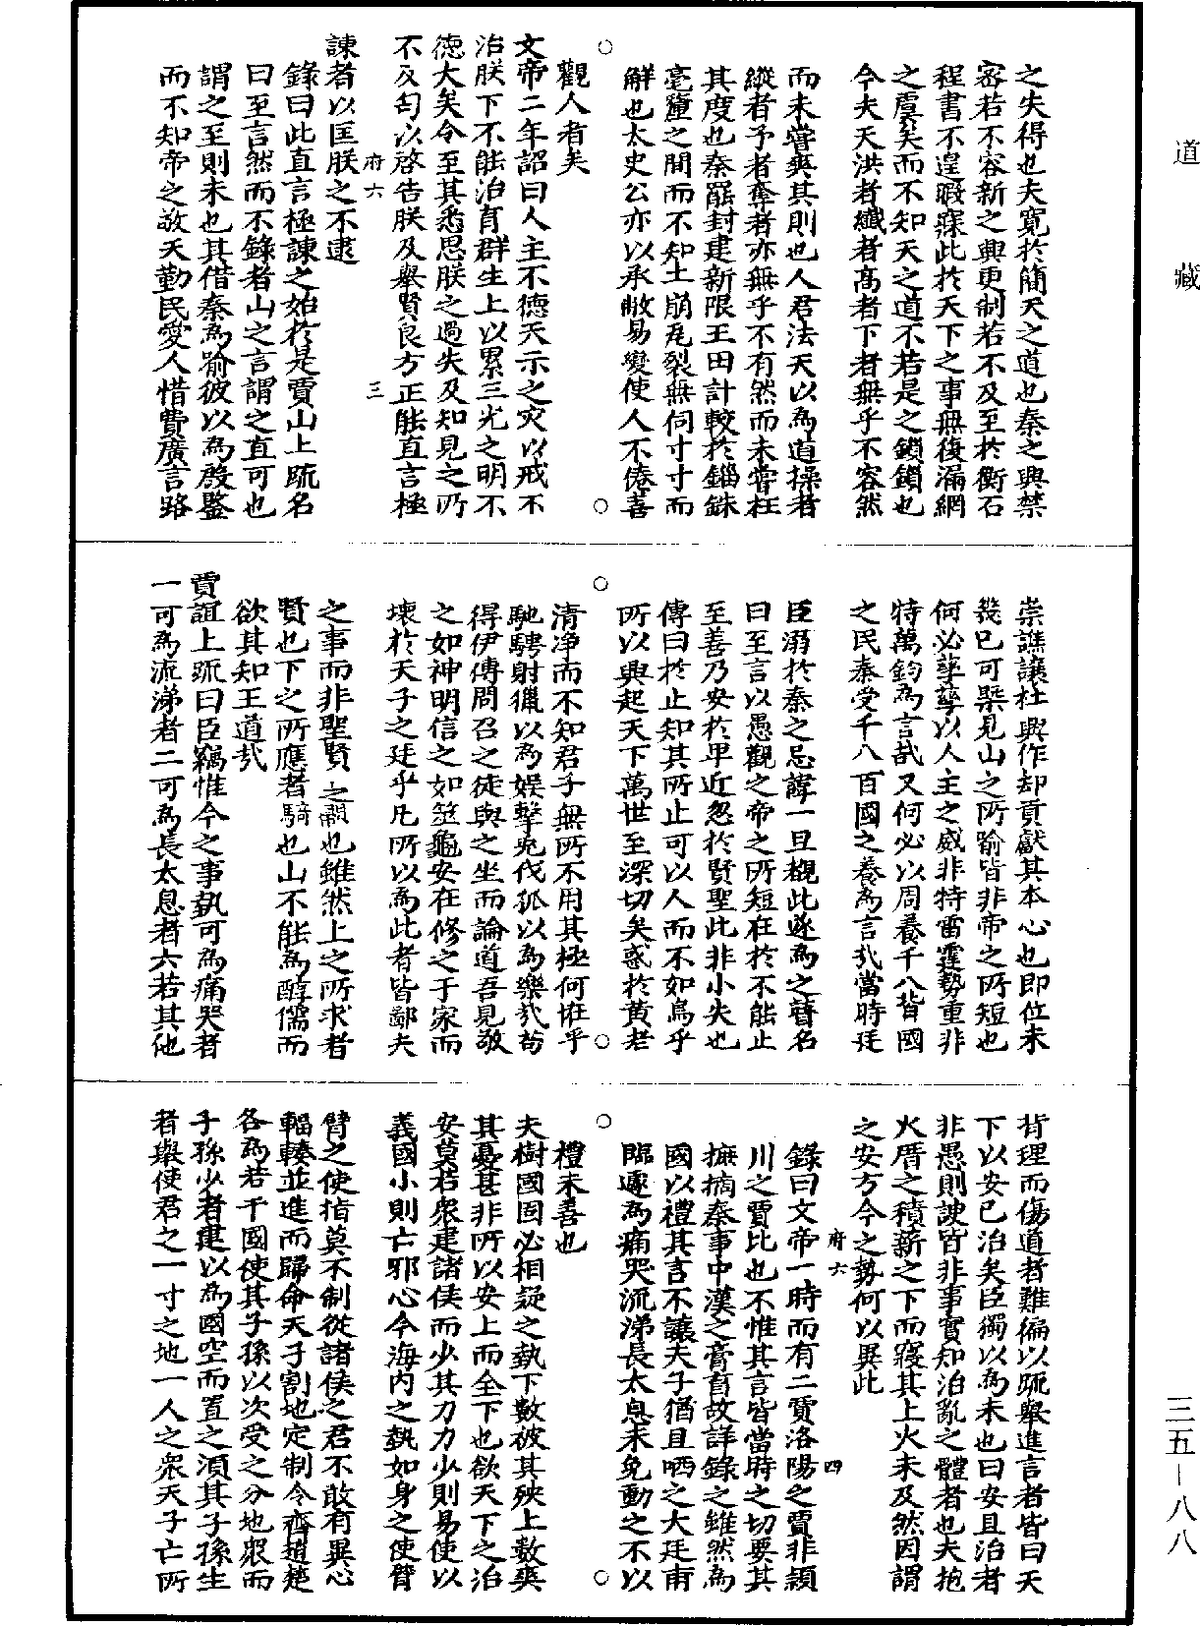 道藏
之失得也夫寬於簡天之道也秦之興禁
密若不容新之興更制若不及至於衡石
程書不遑暇寐此於天下之事無復漏網
之虞矣而不知天之道不若是之鎖鎖也
今夫天洪者纖者高者下者無乎不容然
而未嘗爽其則也人君法天以為道操者
縱者予者奪者亦無乎不有然而未嘗枉
其度也秦罷封建新限王田計較於錙銖
毫釐之間而不知土崩瓦裂無伺寸寸而
解也太史公亦以承敝易變使人不倦善
觀人者矣
文帝二年詔曰人主不德天示之灾以戒不
治朕下不能治育群生上以累三光之明不
德大矣令至其悉思朕之過失及知見之所
不及匄以啓告朕及舉賢良方正能直言極
府六 三
諫者以匡朕之不逮
錄曰此直言極諫之始於是賈山上疏名
曰至言然而不錄者山之言謂之直可也
謂之至則未也其借秦為喻彼以為殷鑒
而不知帝之敬天勤民愛人惜費廣言路
崇謙讓杜興作却貢獻其本心也即位未
幾已可槩見山之所喻皆非帝之所短也
何必孳孳以人主之威非特雷霆勢重非
特萬鈞為言哉又何必以周養千八百國
之民秦受千八百國之養為言哉當時廷
臣溺於秦之忌諱一旦覩此遂為之瞽名
曰至言以愚觀之帝之所短在於不能止
至善乃安於卑近忽於賢聖此非小失也
傳曰於止知其所止可以人而不如鳥乎
所以興起天下萬世至深切矣惑於黃老
清净而不知君子無所不用其極何啙乎
馳騁射獵以為娛擊兔伐狐以為樂哉苟
得伊傅周召之徒與之坐而論道吾見敬
之如神明信之如筮龜安在修之于家而
壞於天子之廷乎凡所以為此者皆鄙夫
之事而非聖賢之謂也雖然上之所求者
賢也下之所應者騎也山不能為醇儒而
欲其知王道哉
賈誼上疏曰臣竊惟今之事埶可為痛哭者
一可為流涕者二可為長太息者六若其他
背理而傷道者難徧以疏舉進言者皆曰天
下以安已治矣臣獨以為未也曰安且治者
非愚則諛皆非事實知治亂之體者也夫抱
火厝之積薪之下而寢其上火未及然因謂
之安方今之勢何以異此
府六 四
錄曰文帝一時而有二賈洛陽之賈非潁
川之賈比也不惟其言皆當時之切要其
摭摘秦事中漢之膏肓故詳錄之雖然為
國以禮其言不讓夫子猶且哂之大廷甫
臨遽為痛哭流涕長太息未免動之不以
禮未善也
夫樹國固必相疑之埶下數被其殃上數爽
其憂甚非所以安上而全下也欲天下之治
安莫若衆建諸侯而少其力力少則易使以
義國小則亡邪心令海內之埶如身之使臂
臂之使指莫不制從諸侯之君不敢有異心
輻輳並進而歸命天子割地定制令齊趙楚
各為若干國使其子孫以次受之分地衆而
子孫少者建以為國空而置之須其子孫生
者舉使君之一寸之地一人之衆天子亡所
三五—八八